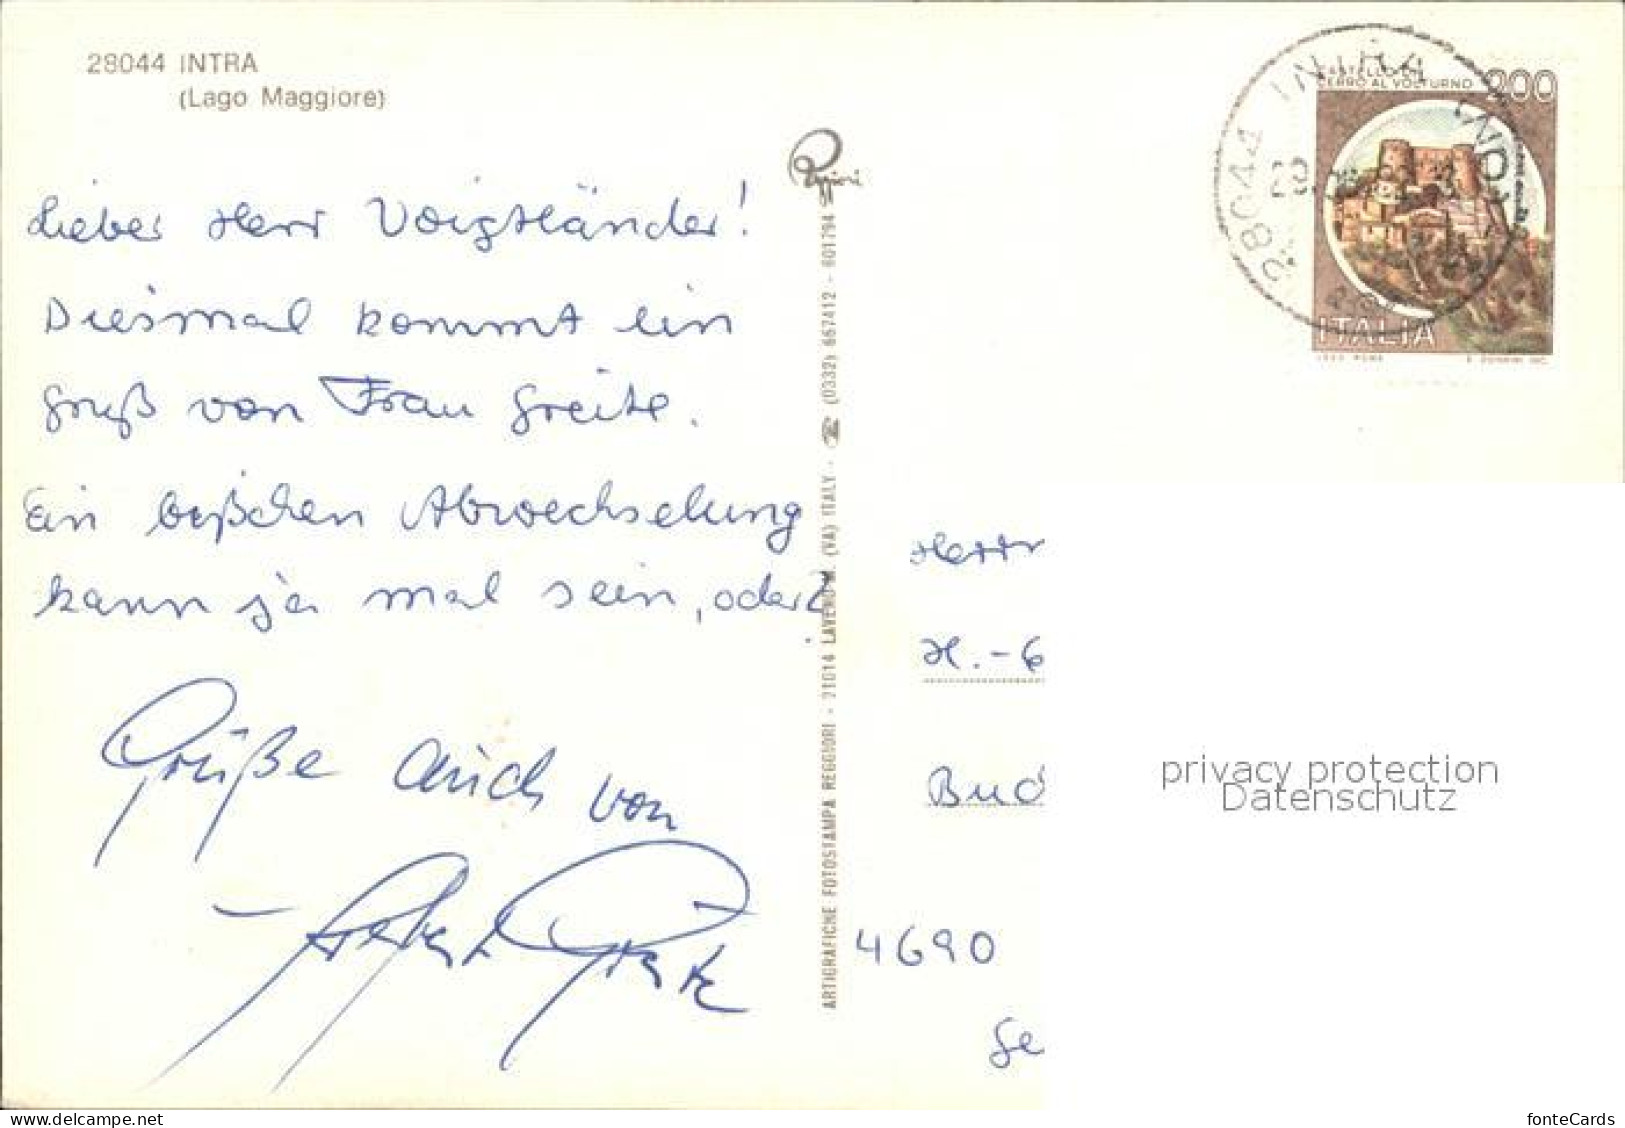 28044 INTRA
(Lago Maggiore)
Lieber Herr Voigtländer!
Diesmal kommt ein
Gruß von Frau Greite.
Ein bißchen Abwechselung
kann ja mal sein, oder?
Grüße auch von
ARTIGRAFICHE FOTOSTAMPA REGGIORI - 21014 LAVENO M. (VA) ITALY - ☎ (0332) 667412 - 601794
Reggiori
28044 INTRA (NO)
CASTELLO DI
CERRO AL VOLTURNO
200
ITALIA
Herrn
H.-G
Bud
4690
privacy protection
Datenschutz
fonteCards
www.delcampe.net